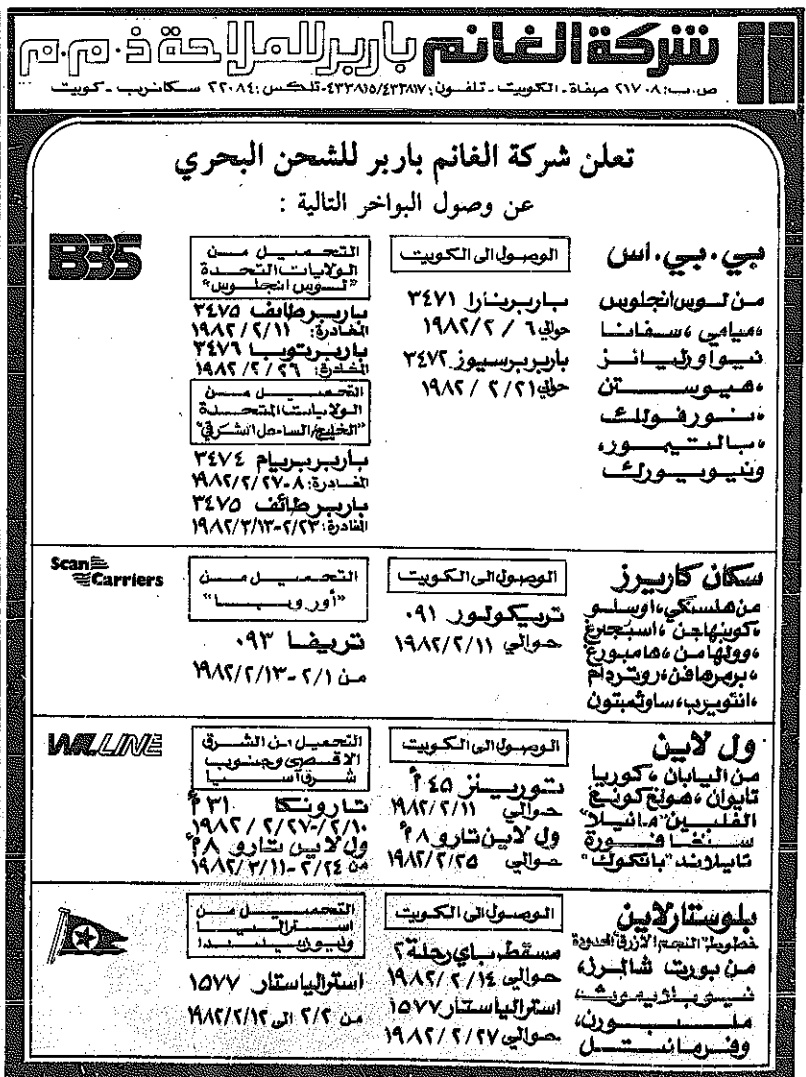 شركة الغانم باربر للملاحة ذ.م.م
ص.ب: ٢١٧٠٨ صفاة - الكويت - تلفون: ٤٣٣٨١٥/٤٣٣٨١٧ - تلكس: ٢٢٠٨٤ سكانريب - كويت
تعلن شركة الغانم باربر للشحن البحري
عن وصول البواخر التالية :
بي . بي . اس
من لوس انجلوس
، ميامي ، سفانا
نيو اورليانز
، هيوستن
، نورفولك
، بالتيمور ،
ونيويورك
الوصول الى الكويت
باربر نارا ٣٤٧١
حوالي ٦ / ٢ / ١٩٨٢
باربر برسيوز ٣٤٧٢
حوالي ٢١ / ٢ / ١٩٨٢
BBS
التحميل من
الولايات المتحدة
"لوس انجلوس"
باربر طائف ٣٤٧٥
المغادرة: ١١ / ٢ / ١٩٨٢
باربر تويبا ٣٤٧٦
المغادرة: ٢٦ / ٢ / ١٩٨٢
التحميل من
الولايات المتحدة
"الخليج/الساحل الشرقي"
باربر بريام ٣٤٧٤
المغادرة: ٨-٢٧ / ٢ / ١٩٨٢
باربر طائف ٣٤٧٥
المغادرة: ٢/٢٣-١٩٨٢/٣/١٣
سكان كاريرز
من هلسنكي ، اوسلو
، كوبنهاجن ، اسبجرغ
، وولهامن ، هامبورغ
، برمرهافن ، روتردام
، انتويرب ، ساوثمبتون
الوصول الى الكويت
تريكولور ٠٩١
حوالي ١١ / ٢ / ١٩٨٢
Scan
Carriers
التحميل من
"أوروبا"
تريفا ٠٩٣
من ٢/١ - ١٩٨٢/٢/١٣
ول لاين
من اليابان ، كوريا
تايوان ، هونغ كونغ
الفلبين "مانيلا"
سنغافورة
تايلاند "بانكوك"
الوصول الى الكويت
تورينز ٤٥ أ
حوالي ١١ / ٢ / ١٩٨٢
ول لاين تارو ٨ أ
حوالي ٢٥ / ٢ / ١٩٨٢
WILLINE
التحميل من الشرق
الاقصى وجنوب
شرق آسيا
تارونكا ٣١ أ
٢/١٠-٢/٢٧ / ١٩٨٢
ول لاين تارو ٨ أ
من ٢/٢٤ - ١٩٨٢/٣/١١
بلو ستار لاين
خطوط "النجم الازرق المحدودة"
من بورت شالرز ،
نيو بلايموث ،
ملبورن ،
وفرمانتل
الوصول الى الكويت
مسقط باي رحلة ٢
حوالي ١٤ / ٢ / ١٩٨٢
استراليا ستار ١٥٧٧
حوالي ٢٧ / ٢ / ١٩٨٢
التحميل من
استراليا
ونيوزيلندا
استراليا ستار ١٥٧٧
من ٢/٢ الى ١٩٨٢/٢/١٢